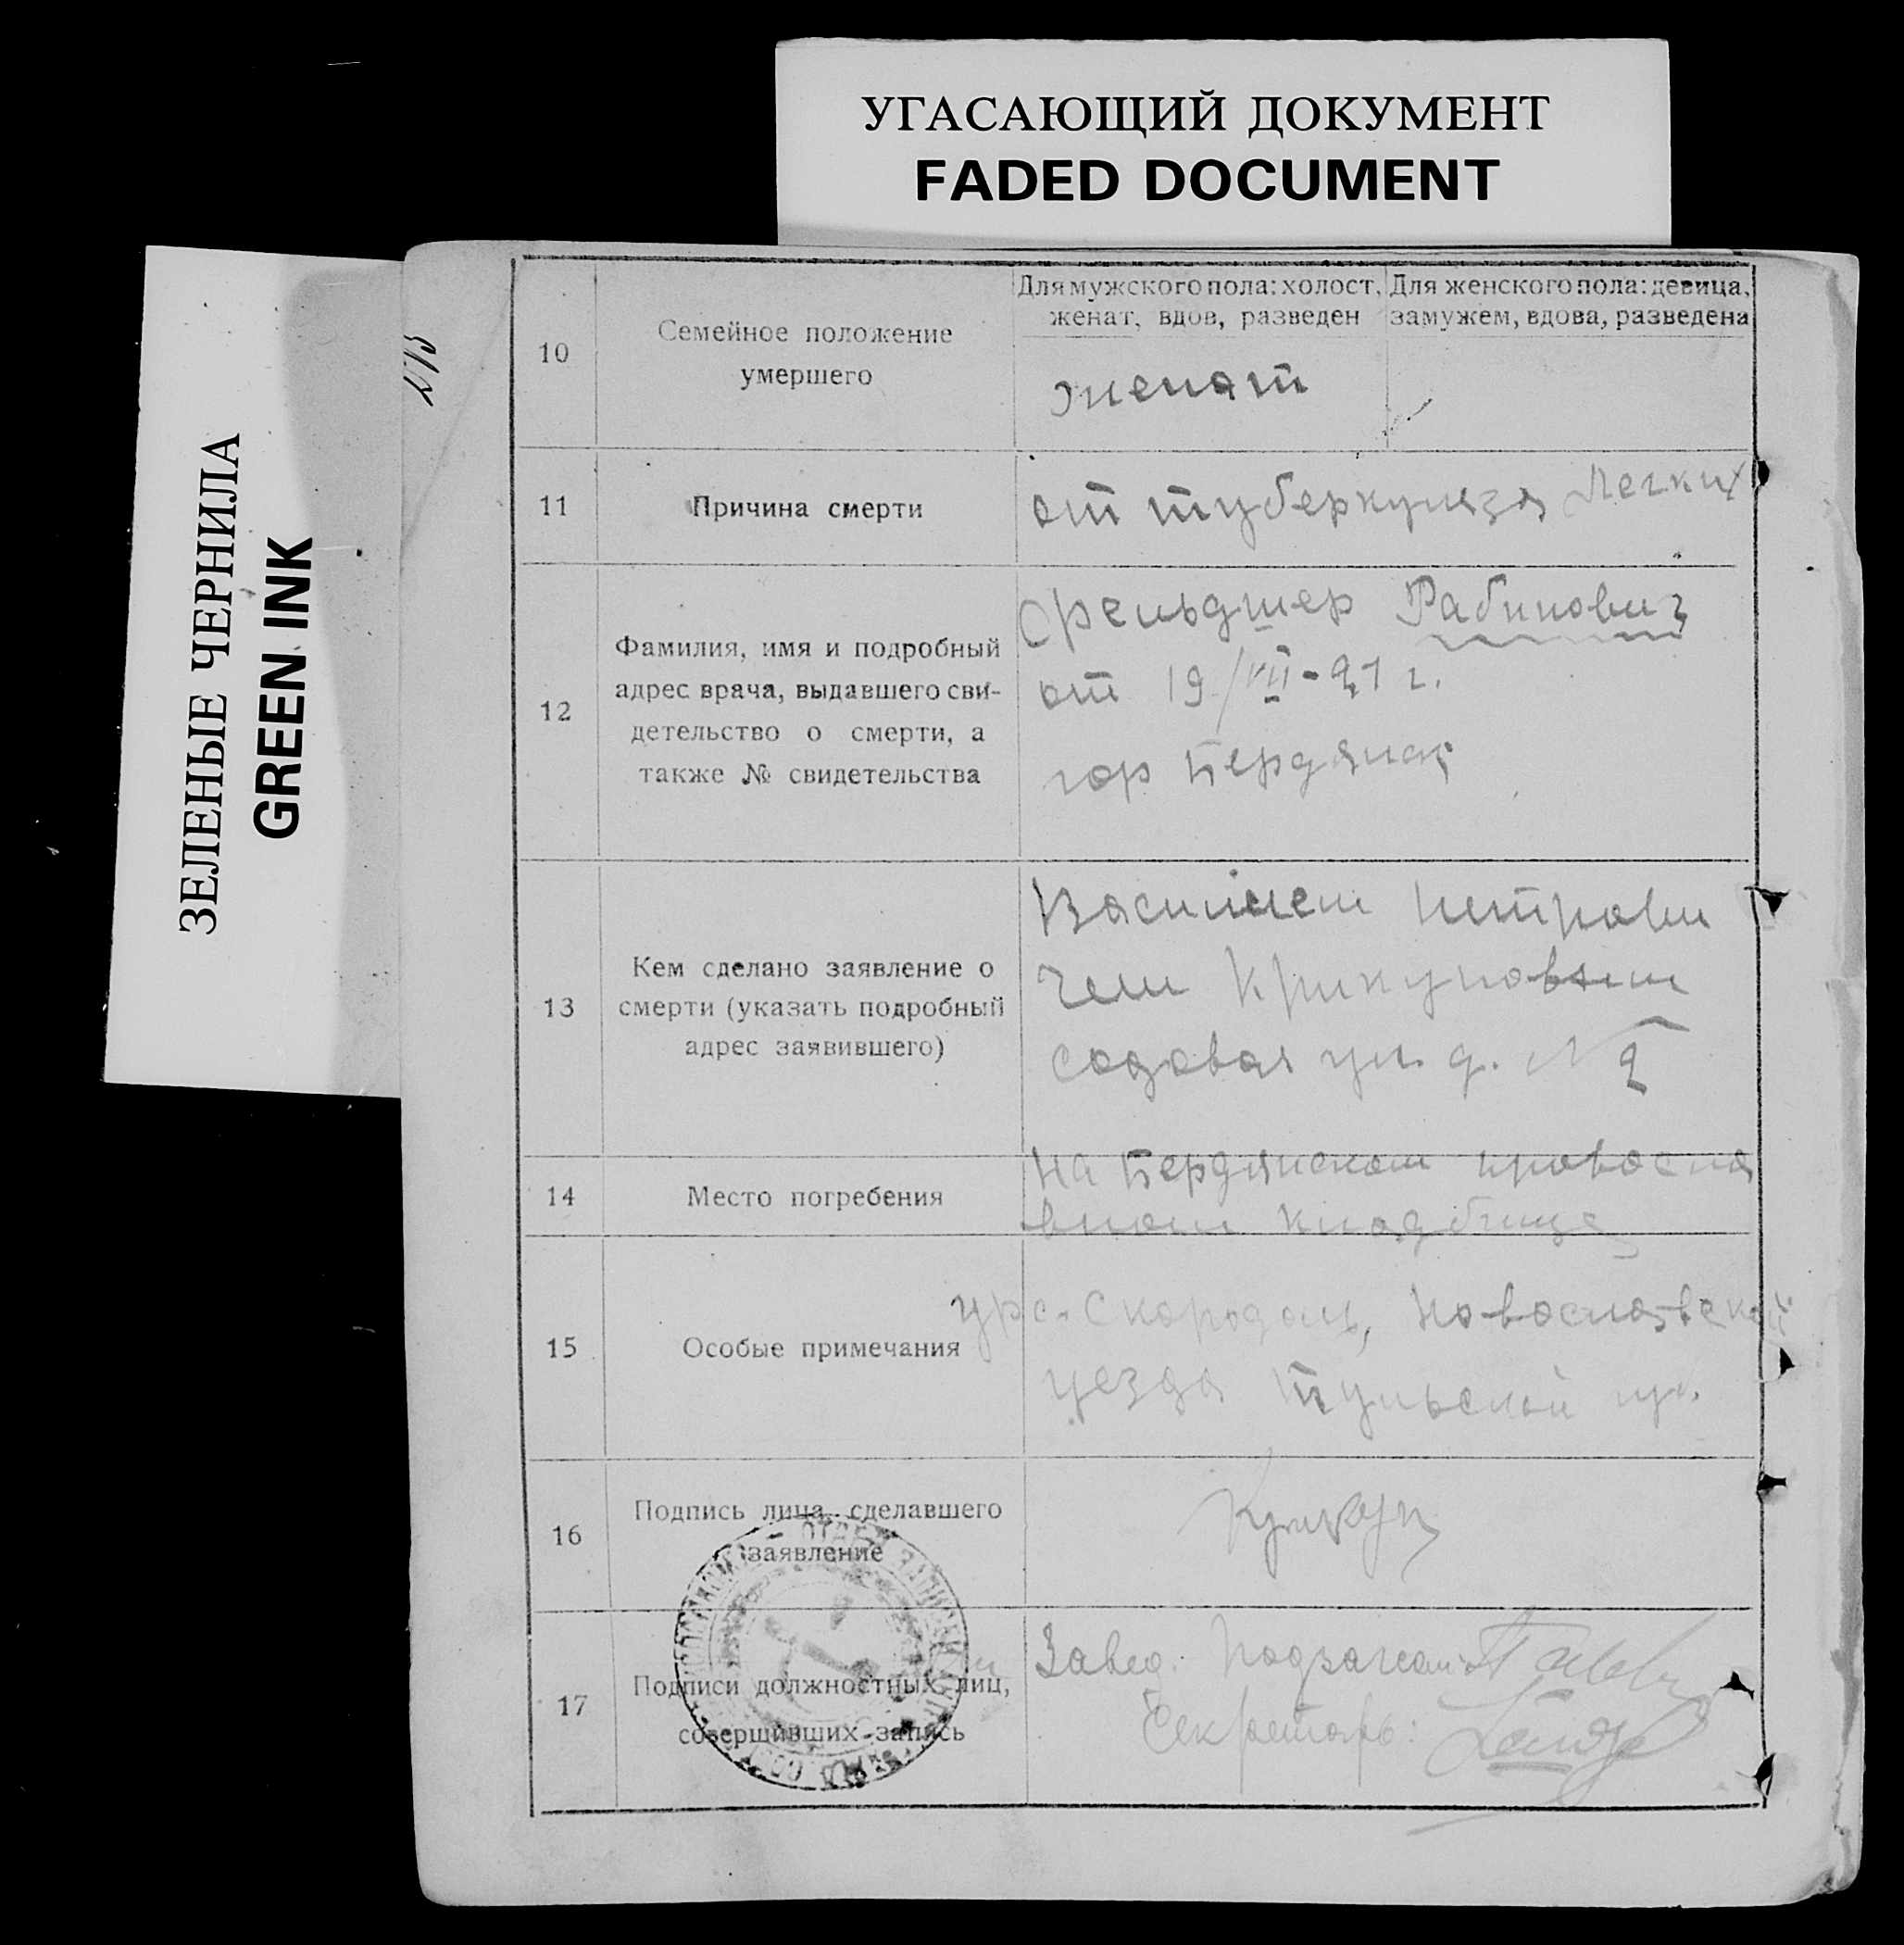 УГАСАЮЩИЙ ДОКУМЕНТ
FADED DOCUMENT
ЗЕЛЕНЫЕ ЧЕРНИЛА
GREEN INK
10
Семейное положение
умершего
Для мужского пола: холост,
женат, вдов, разведен
Для женского пола: девица,
замужем, вдова, разведена
женат
11
Причина смерти
от туберкулеза легких
12
Фамилия, имя и подробный
адрес врача, выдавшего сви-
детельство о смерти, а
также № свидетельства
Фельдшер Рабинович
от 19/VII-21 г.
гор Бердянск
13
Кем сделано заявление о
смерти (указать подробный
адрес заявившего)
Василием Петрови
чем Крикуновым
садовая ул. д. №
14
Место погребения
На Бердянском православ
вном кладбище
15
Особые примечания
уезда Тульской
16
Подпись лица, сделавшего
заявление
Крикун
17
Подписи должностных лиц,
совершивших запись
Завед. Подзагсом
Секретарь: